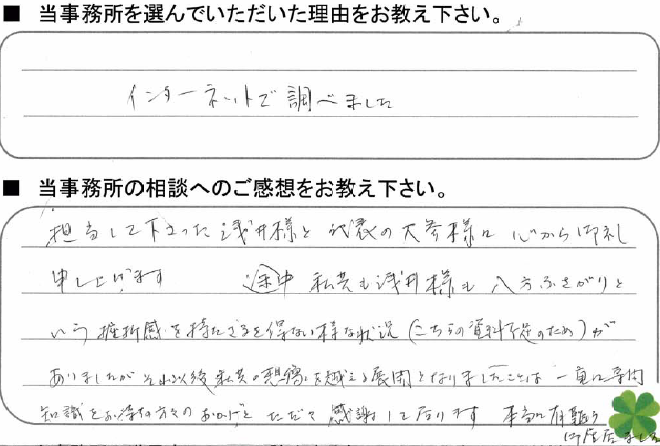 ■ 当事務所を選んでいただいた理由をお教え下さい。
インターネットで調べました
■ 当事務所の相談へのご感想をお教え下さい。
担当して下さった浅井様と代表の大参様に心から御礼
申し上げます 途中 私共も浅井様も八方ふさがりと
いう挫折感を持たざるを得ない様な状況(こちらの資料不足のため)が
ありましたが それ以後私共の想像を越える展開となりましたことは 一重に専門
知識をお持ちの方々のおかげと ただただ感謝して居ります 本当に有難う